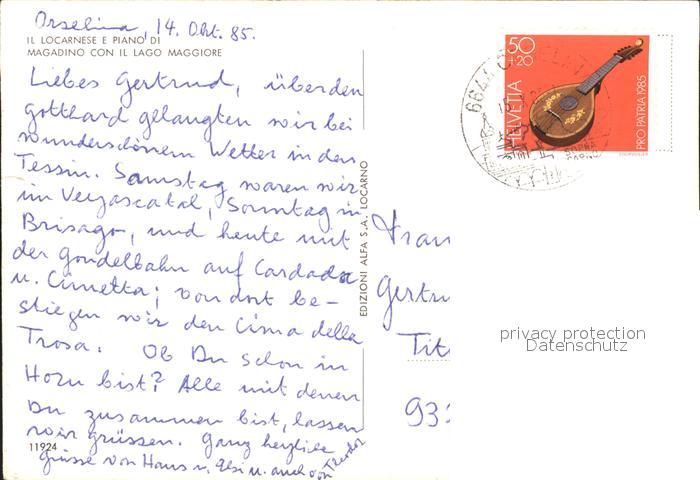 Orselina, 14. Okt. 85.
IL LOCARNESE E PIANO DI
MAGADINO CON IL LAGO MAGGIORE
Liebes Gertrud, über den
Gotthard gelangten wir bei
wunderschönem Wetter in den
Tessin. Samstag waren wir
im Verzascatal, Sonntag in
Brisago, und heute mit
der Gondelbahn auf Cardada
u. Cimetta; von dort be-
stiegen wir den Cima della
Trosa. Ob Du schon in
Horn bist? Alle mit denen
Du zusammen bist, lassen
wir grüssen. Ganz herzliche
Grüsse von Hans u. Elsi u. auch von Theodor
11924
EDIZIONI ALFA S.A. LOCARNO
50
+20
HELVETIA
PRO PATRIA 1985
6644 ORSELINA
Frau
Gertru
Tit
93
privacy protection
Datenschutz